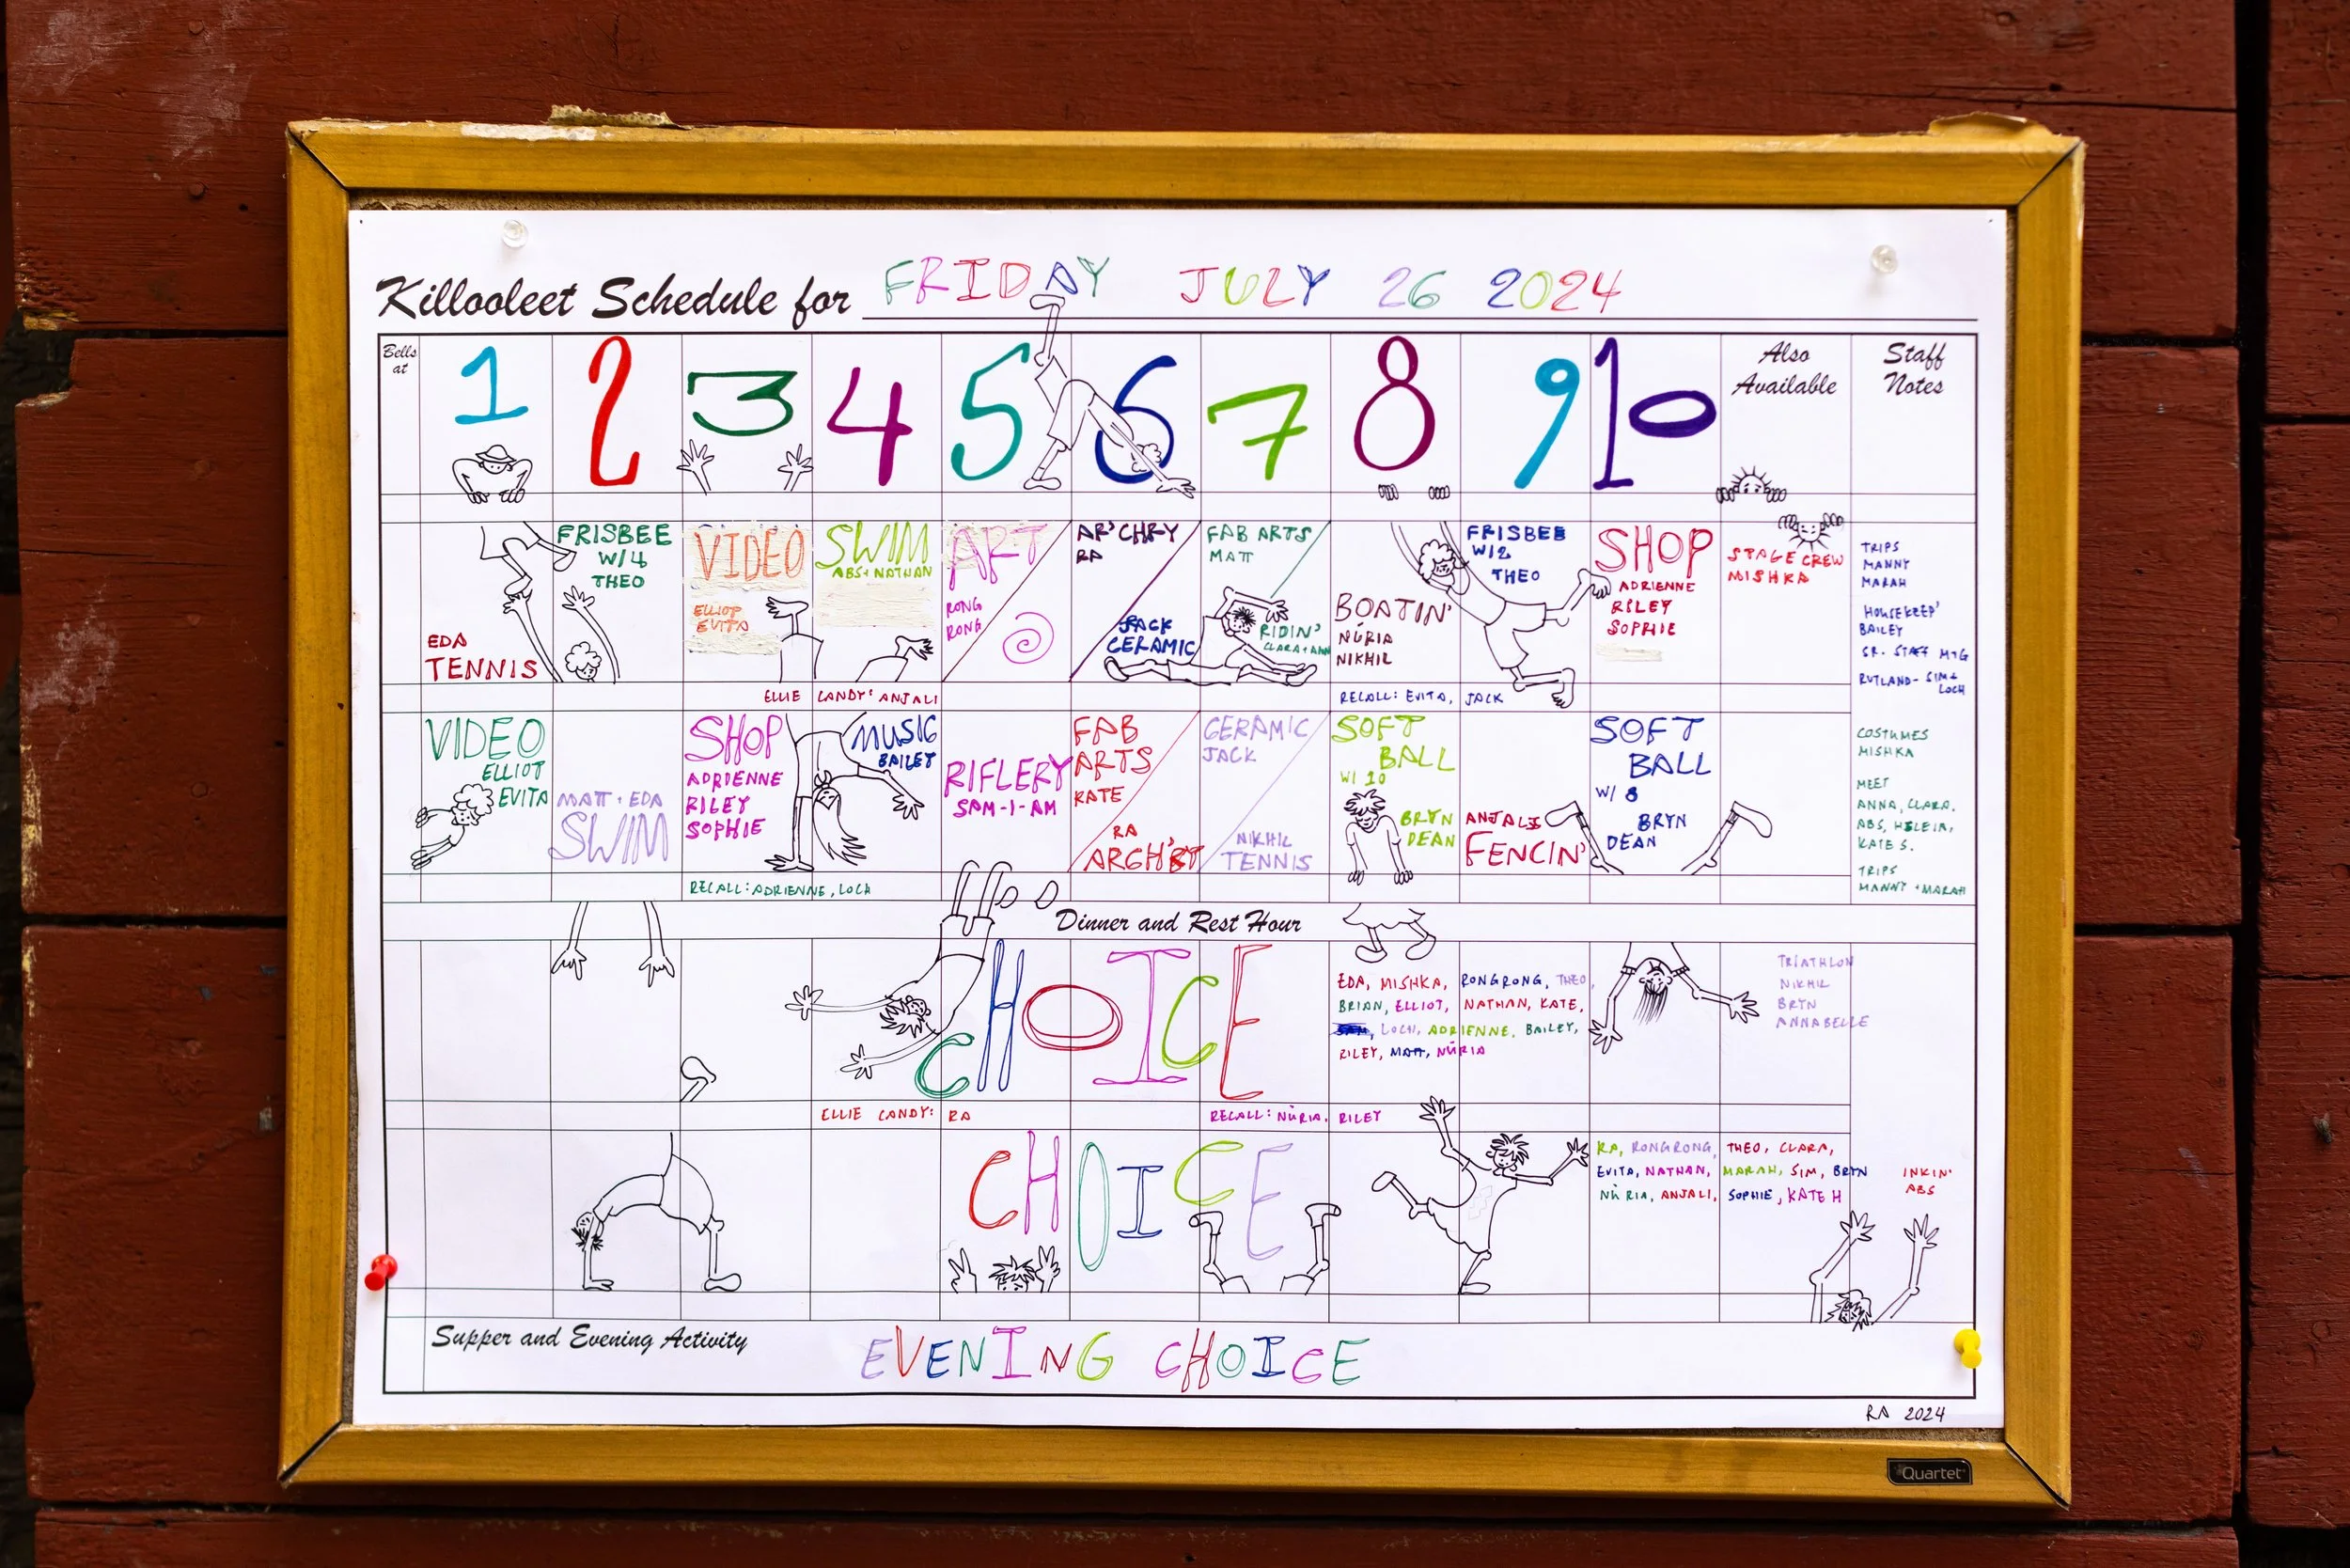 Killooleet Schedule for FRIDAY JULY 26 2024
Bells
at
1 2 3 4 5 6 7 8 9 10
Also
Available
Staff
Notes
EDA
TENNIS
FRISBEE
W/4
THEO
VIDEO
ELLIOT
EVITA
SWIM
ABS + NATHAN
ART
RONG
RONG
AR'CHRY
RA
JACK
CERAMIC
FAB ARTS
MATT
RIDIN'
BOATIN'
NÚRIA
NIKHIL
FRISBEE
W/2
THEO
SHOP
ADRIENNE
RILEY
SOPHIE
STAGE CREW
MISHKA
TRIPS
MANNY
MARAH
HOUSEKEEP'
BAILEY
SR. STAFF MTG
RUTLAND- SIM+
LOCH
ELLIE CANDY: ANJALI
RECALL: EVITA, JACK
VIDEO
ELLIOT
EVITA
MATT + EDA
SWIM
SHOP
ADRIENNE
RILEY
SOPHIE
MUSIC
BAILEY
RIFLERY
SAM-I-AM
FAB
ARTS
KATE
RA
CERAMIC
JACK
NIKHIL
TENNIS
SOFT
BALL
W/ 10
BRYN
DEAN
ANJALI
FENCIN'
SOFT
BALL
W/ 8
BRYN
DEAN
COSTUMES
MISHKA
MEET
ANNA, CLARA,
ABS, HELEIA,
KATE S.
TRIPS
MANNY + MARAH
RECALL: ADRIENNE, LOCH
Dinner and Rest Hour
CHOICE
EDA, MISHKA, RONGRONG, THEO,
BRIAN, ELLIOT, NATHAN, KATE,
LOCH, ADRIENNE, BAILEY,
RILEY, MATT, NÚRIA
TRIATHLON
NIKHIL
BRYN
ANNABELLE
ELLIE CANDY: RA
RECALL: NÚRIA, RILEY
CHOICE
RA, RONGRONG, THEO, CLARA,
EVITA, NATHAN, MARAH, SIM, BRYN
NÚRIA, ANJALI, SOPHIE, KATE H
INKIN'
ABS
Supper and Evening Activity
EVENING CHOICE
RA 2024
Quartet